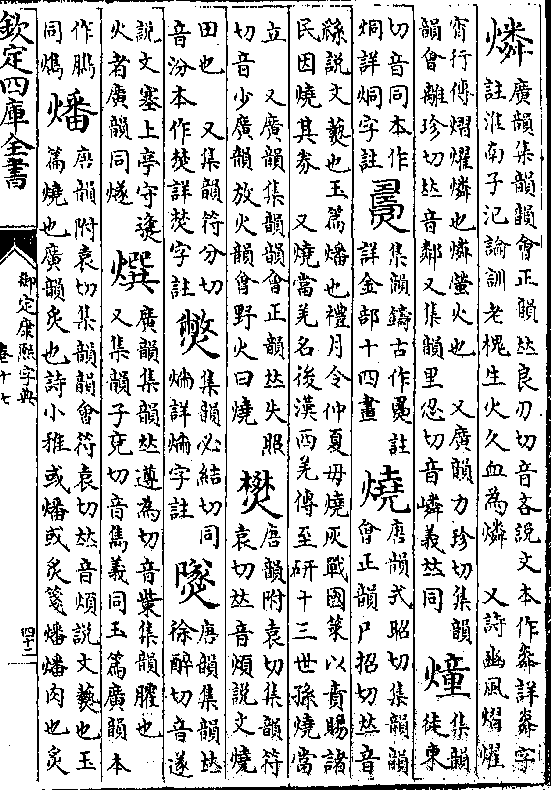 燐
廣韻集韻韻會正韻𠀤良刃切音吝說文本作粦詳粦字
註淮南子氾論訓老槐生火久血為燐 又詩豳風熠燿
宵行傳熠燿燐也燐螢火也 又廣韻力珍切集韻
韻會離珍切𠀤音鄰又集韻里忍切音嶙義𠀤同
燑
集韻
徒東
切音同本作
烔詳烔字註
集韻鑄古作註
詳金部十四畫
燒
唐韻式昭切集韻韻
會正韻尸招切𠀤音
說文爇也玉篇燔也禮月令仲夏毋燒灰戰國策以責賜諸
民因燒其券 又燒當羌名後漢西羌傳至研十三世孫燒當
立 又廣韻集韻韻會正韻𠀤失照
切音少廣韻放火韻會野火曰燒
燓
唐韻附袁切集韻符
袁切𠀤音煩說文燒
田也 又集韻符分切
音汾本作焚詳焚字註
集韻必結切同
詳字註
唐韻集韻𠀤
徐醉切音遂
說文塞上亭守
火者廣韻同燧
廣韻集韻𠀤遵為切音集韻臇也
又集韻子兗切音雋義同玉篇廣韻本
作
同
燔
唐韻附袁切集韻韻會符袁切𠀤音煩說文爇也玉
篇燒也廣韻炙也詩小雅或燔或炙箋燔燔肉也炙
欽定四庫全書
御定康熙字典
卷十七
四十二